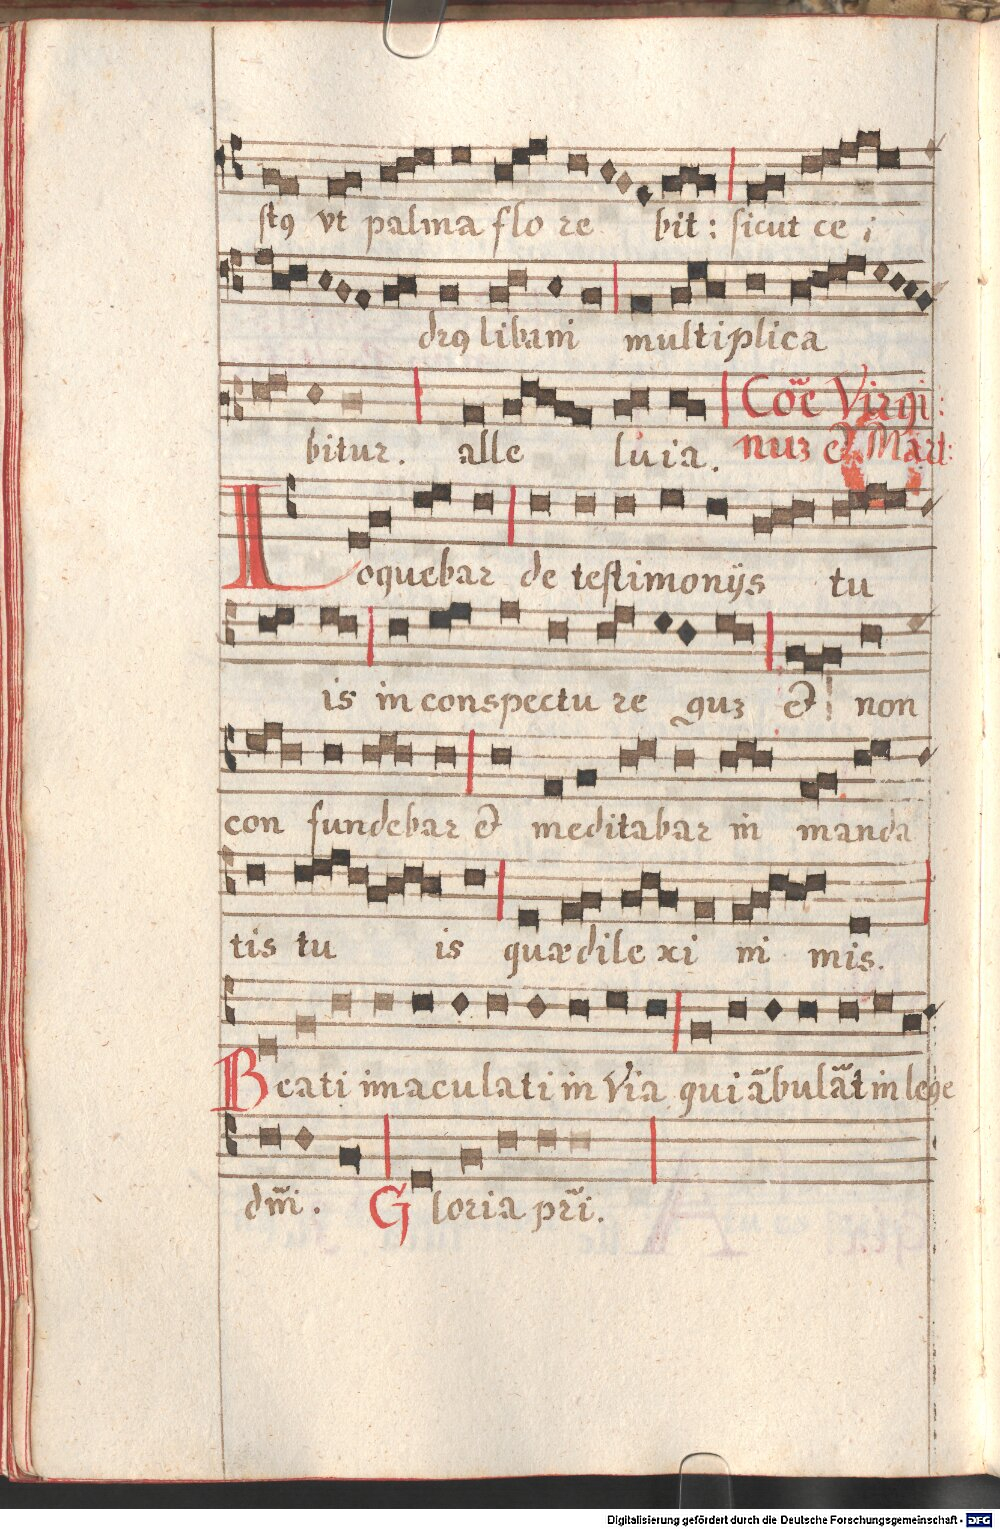 stꝯ vt palma flo re bit : sicut ce ;
drꝯ libani multiplica
bitur. alle luia. Cōe Virgi:
nuꝫ et Mart:
Loquebar de testimonijs tu
is in conspectu re guꝫ et non
con fundebar et meditabar in manda
tis tu is quæ dile xi ni mis.
Beati imaculati in Via qui ābulāt in lege
dm̄i. Gloria pr̄i.
Digitalisierung gefördert durch die Deutsche Forschungsgemeinschaft - DFG